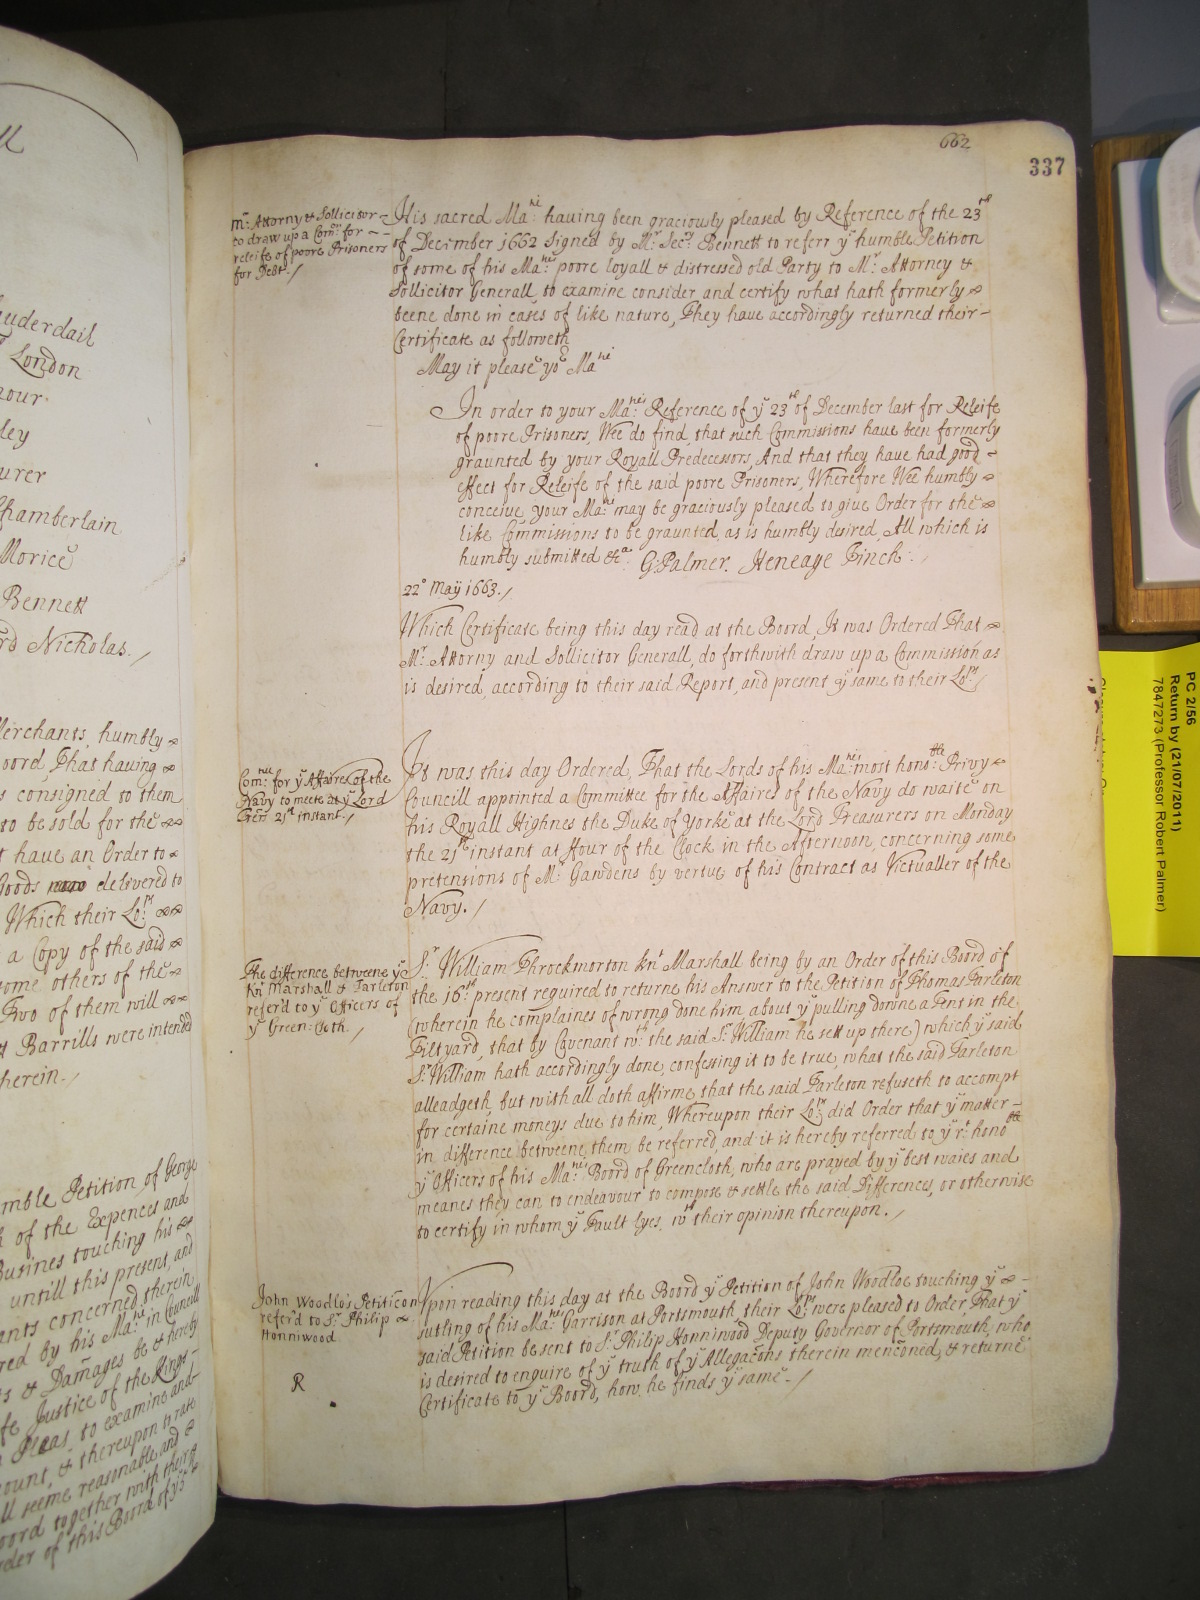 ll
uderdail
London
our
ley
urer
Chamberlain
Morice
Bennett
rd Nicholas./
Merchants, humbly
oord That having
s consigned to them
to be sold for the
t have an Order to
Goods delivered to
Which their Lo:ps
a Copy of the said
ome others of the
Two of them will
Barrills were intended
herein./
mble Petition of George
of the Expences and
Busines touching his
untill this present, and
ants concerned therein
red by his Ma:tie in Councell
s & Damages be & hereby
fe Justice of the Kings
Pleas, to examine and
ount, & thereupon to rate
ll seeme reasonable and
oord together with their
rder of this Board of ye
662
337
Mr. Attorny & Sollicitor
to draw up a Com:on for
releife of poore Prisoners
for Debt./
His sacred Ma:tie having been graciously pleased by Reference of the 23rd
of December 1662 Signed by Mr. Secr. Bennett to referr ye humble Petition
of some of his Ma:ties poore loyall & distressed old Party to Mr. Attorney &
Sollicitor Generall to examine consider and certify what hath formerly
beene done in cases of like nature, They have accordingly returned their
Certificate as followeth
May it please yor Matie
In order to your Ma:ties Reference of ye 23rd of December last for Releife
of poore Prisoners, Wee do find, that such Commissions have been formerly
graunted by your Royall Predecessors, And that they have had good
effect for Releife of the said poore Prisoners, Wherefore Wee humbly
conceive your Ma:tie may be graciously pleased to give Order for the
like Commissions to be graunted, as is humbly desired, All which is
humbly submitted &ca G: Palmer. Heneage Finch.
22o May 1663./
Which Certificate being this day read at the Board, It was Ordered That
Mr. Attorny and Sollicitor Generall, do forthwith draw up a Commission as
is desired, according to their said Report, and present ye same to their Lo:ps/
Com:tee for ye Affaires of the
Navy to meete at ye Lord
Trers 21st instant./
It was this day Ordered, That the Lords of his Ma:ties most hono:ble Privy
Councill appointed a Committee for the Affaires of the Navy do waite on
his Royall Highnes the Duke of Yorke at the Lord Treasurers on Monday
the 21th instant at ffour of the Clock in the Afternoon, concerning some
pretensions of Mr. Gawdens by vertue of his Contract as Victualler of the
Navy./
The difference betweene ye
Knt Marshall & Tarleton
referd to ye Officers of
ye Green-Cloth./
Sr. William Throckmorton Knt Marshall being by an Order of this Board of
the 16th present required to returne his Answer to the Petition of Thomas Tarleton
(wherein he complaines of wrong done him, about ye pulling downe a Tent in the
Tiltyard, that by Covenant wth the said Sr. William he sett up there) which ye said
Sr William hath accordingly done, confessing it to be true, what the said Tarleton
alleadgeth, but with all doth affirme, that the said Tarleton refuseth to accompt
for certaine moneys due to him, Whereupon their Lo:ps did Order that ye matter
in difference betweene them be referred, and it is hereby referred to ye rt. honoble
ye Officers of his Ma:ties Board of Greencloth, who are prayed by ye best waies and
meanes they can to endeavour to compose & settle the said Differences, or otherwise
to certify in whom ye Fault lyes, wth their opinion thereupon./
John Woodlos Petition
referd to Sr. Philip
Honniwood
R
Upon reading this day at the Board ye Petition of John Woodloe touching ye
sutling of his Ma:ties Garrison at Portsmouth, their Lo:ps were pleased to Order That ye
said Petition be sent to Sr. Philip Honniwood Deputy Governor of Portsmouth, who
is desired to enquire of ye truth of ye Allegacons therein menconed, & returne
Certificate to ye Board, how he finds ye same./
PC 2/56
Return by (21/07/2011)
7847273 (Professor Robert Palmer)